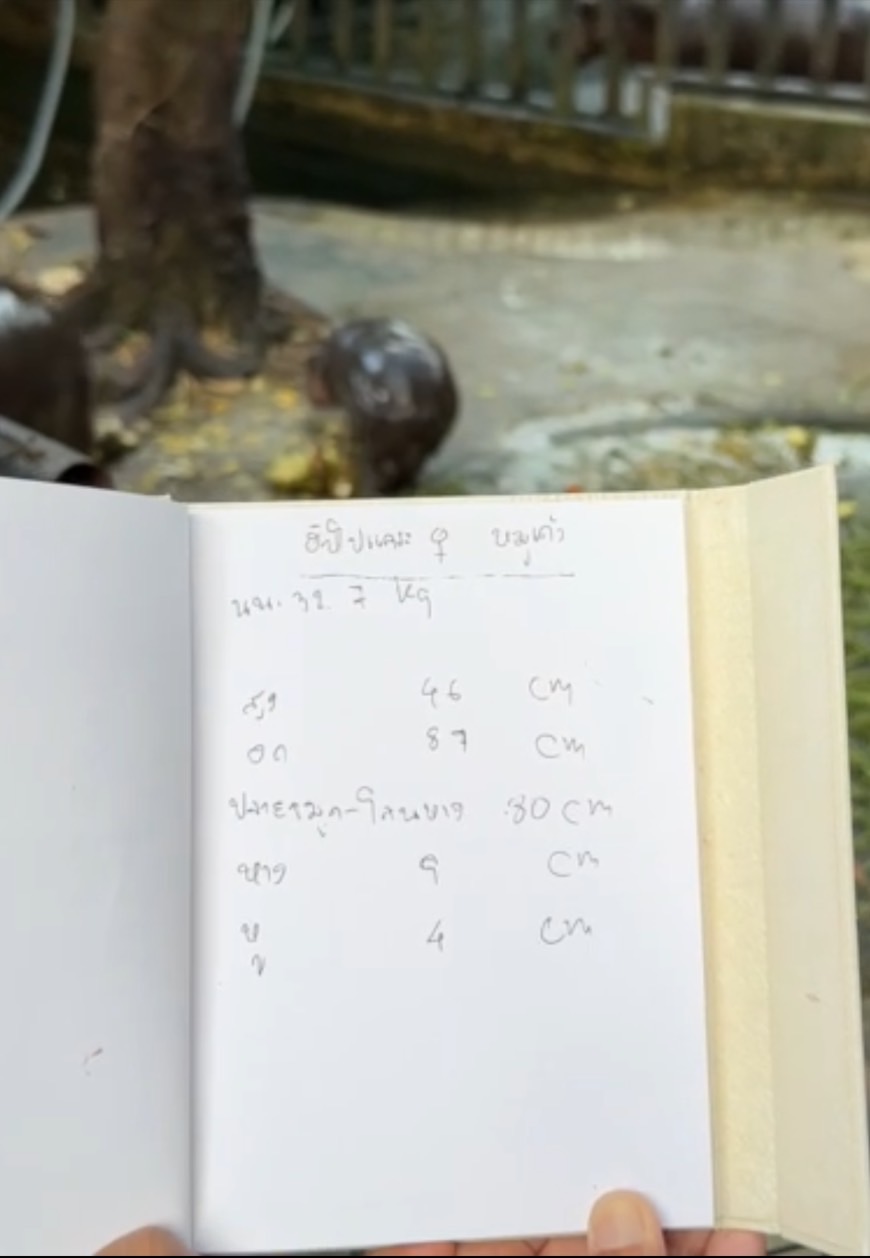 ฮิปโปแคระ ♀ หมูแก้ว
นน. 32.7 kg
สูง 46 cm
อก 87 cm
ปลายจมูก-โคนหาง 80 cm
หาง 9 cm
หู 4 cm